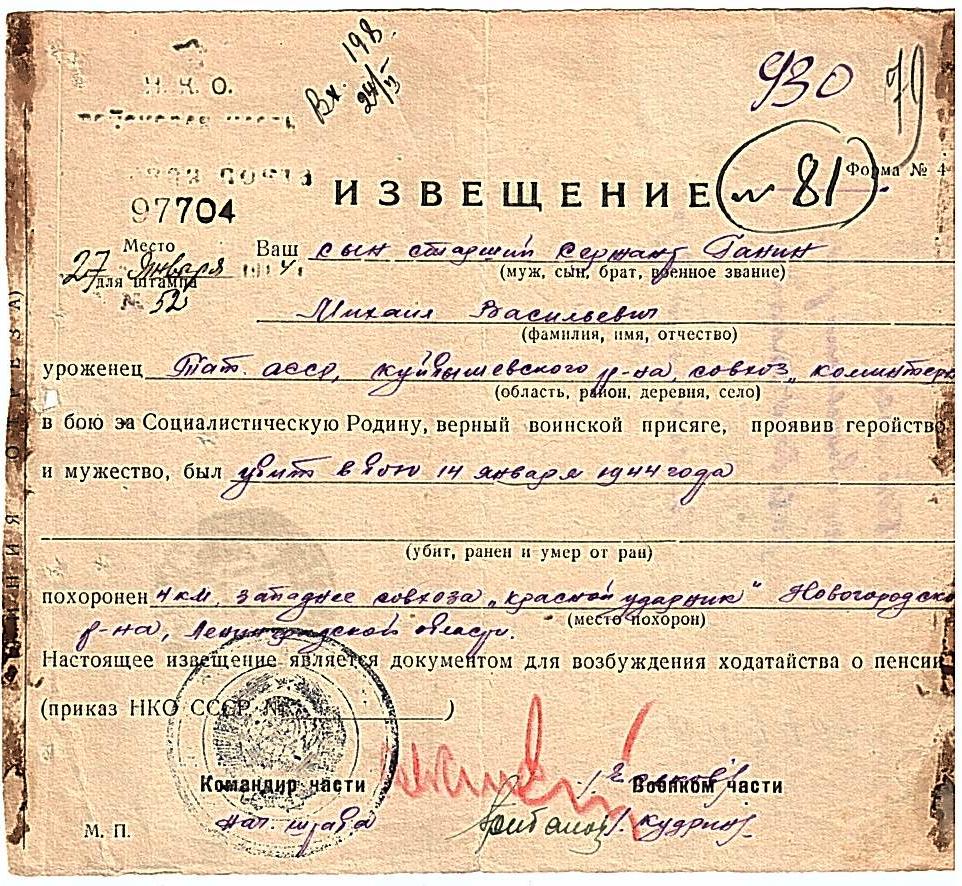 Н. К. О.
Вх. 198.
930
79
Форма № 4
ИЗВЕЩЕНИЕ № 81
97704
Место
для штампа
27 Января
№ 52
Ваш сын старший сержант Ганин
(муж, сын, брат, военное звание)
Михаил Васильевич
(фамилия, имя, отчество)
уроженец Тат. АССР, Куйбышевского р-на, совхоз „Коминтерн
(область, район, деревня, село)
в бою за Социалистическую Родину, верный воинской присяге, проявив геройство
и мужество, был убит в бою 14 января 1944 года
(убит, ранен и умер от ран)
похоронен 4 км. западнее совхоза „Красной ударник" Новогородско
(место похорон)
р-на, Ленинградской области.
Настоящее извещение является документом для возбуждения ходатайства о пенсии
(приказ НКО СССР № )
Командир части
Военком части
нач. штаба
/Кудрин/
М. П.